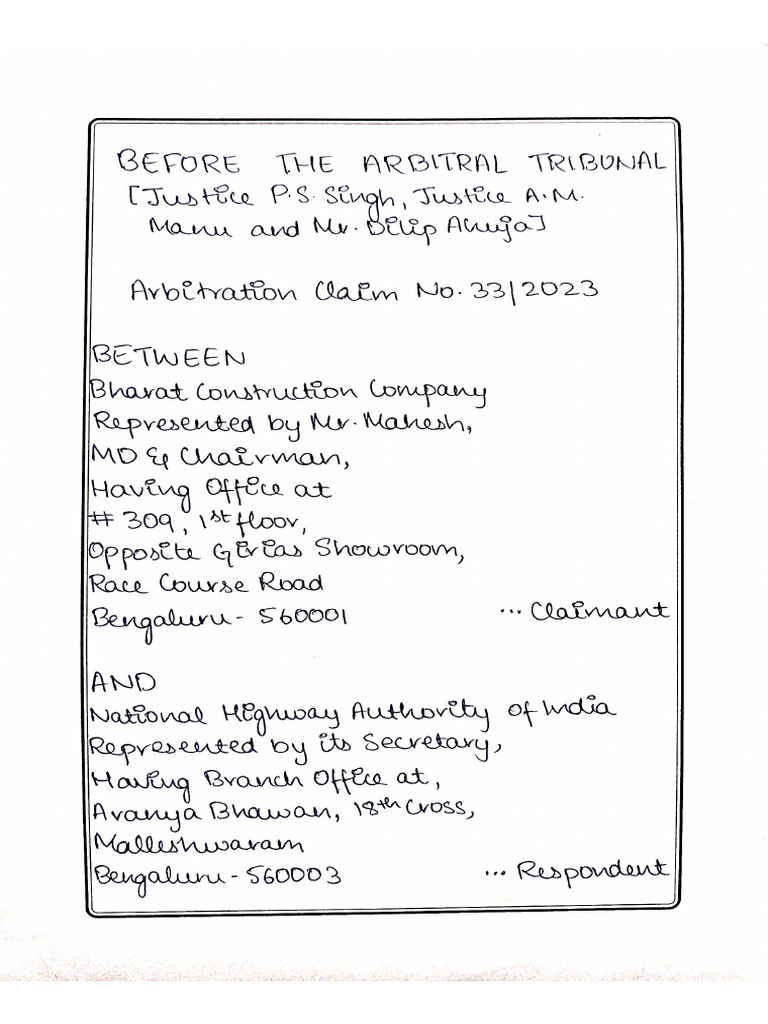 BEFORE THE ARBITRAL TRIBUNAL
[Justice P.S. Singh, Justice A.M.
Manu and Mr. Dilip Ahuja]
Arbitration Claim No. 33/2023
BETWEEN
Bharat Construction Company
Represented by Mr. Mahesh,
MD & Chairman,
Having Office at
# 309, 1st floor,
Opposite Girias Showroom,
Race Course Road
Bengaluru - 560001 ... Claimant
AND
National Highway Authority of India
Represented by its Secretary,
Having Branch Office at,
Aranya Bhawan, 18th Cross,
Malleshwaram
Bengaluru - 560003 ... Respondent